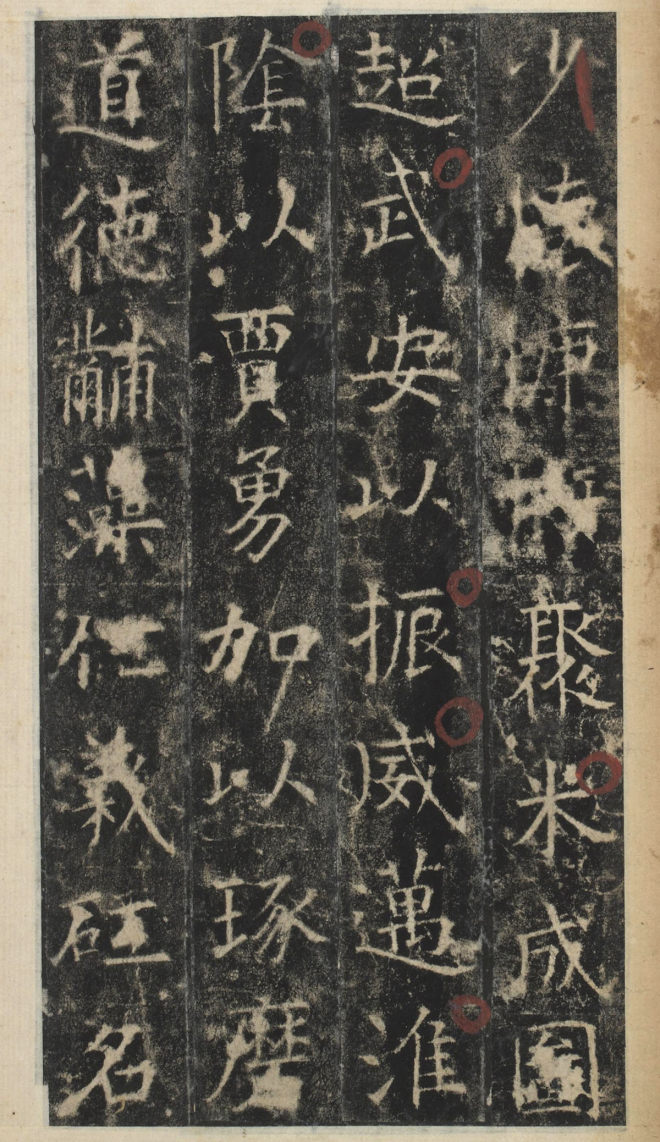 少師聚米成圖
超武安以振威邁淮
陰以賈勇加以琢磨
道德黼藻仁義砥名